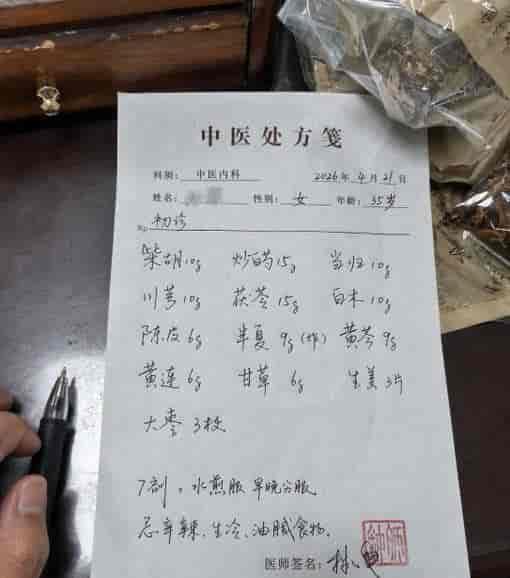 中医处方笺
科别: 中医内科 2026年4月21日
姓名: 性别: 女 年龄: 35岁
No 初诊
柴胡10g 炒白芍15g 当归10g
川芎10g 茯苓15g 白术10g
陈皮6g 半夏9g(炸) 黄芩9g
黄连6g 甘草6g 生姜3片
大枣3枚
7剂,水煎服 早晚分服
忌辛辣、生冷、油腻食物。
医师签名: 林